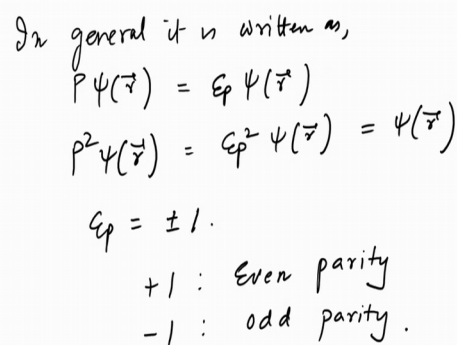 In general it is written as,
Pψ(r⃗) = εp ψ(r⃗)
P²ψ(r⃗) = εp² ψ(r⃗) = ψ(r⃗)
εp = ±1.
+1 : Even parity
-1 : odd parity.